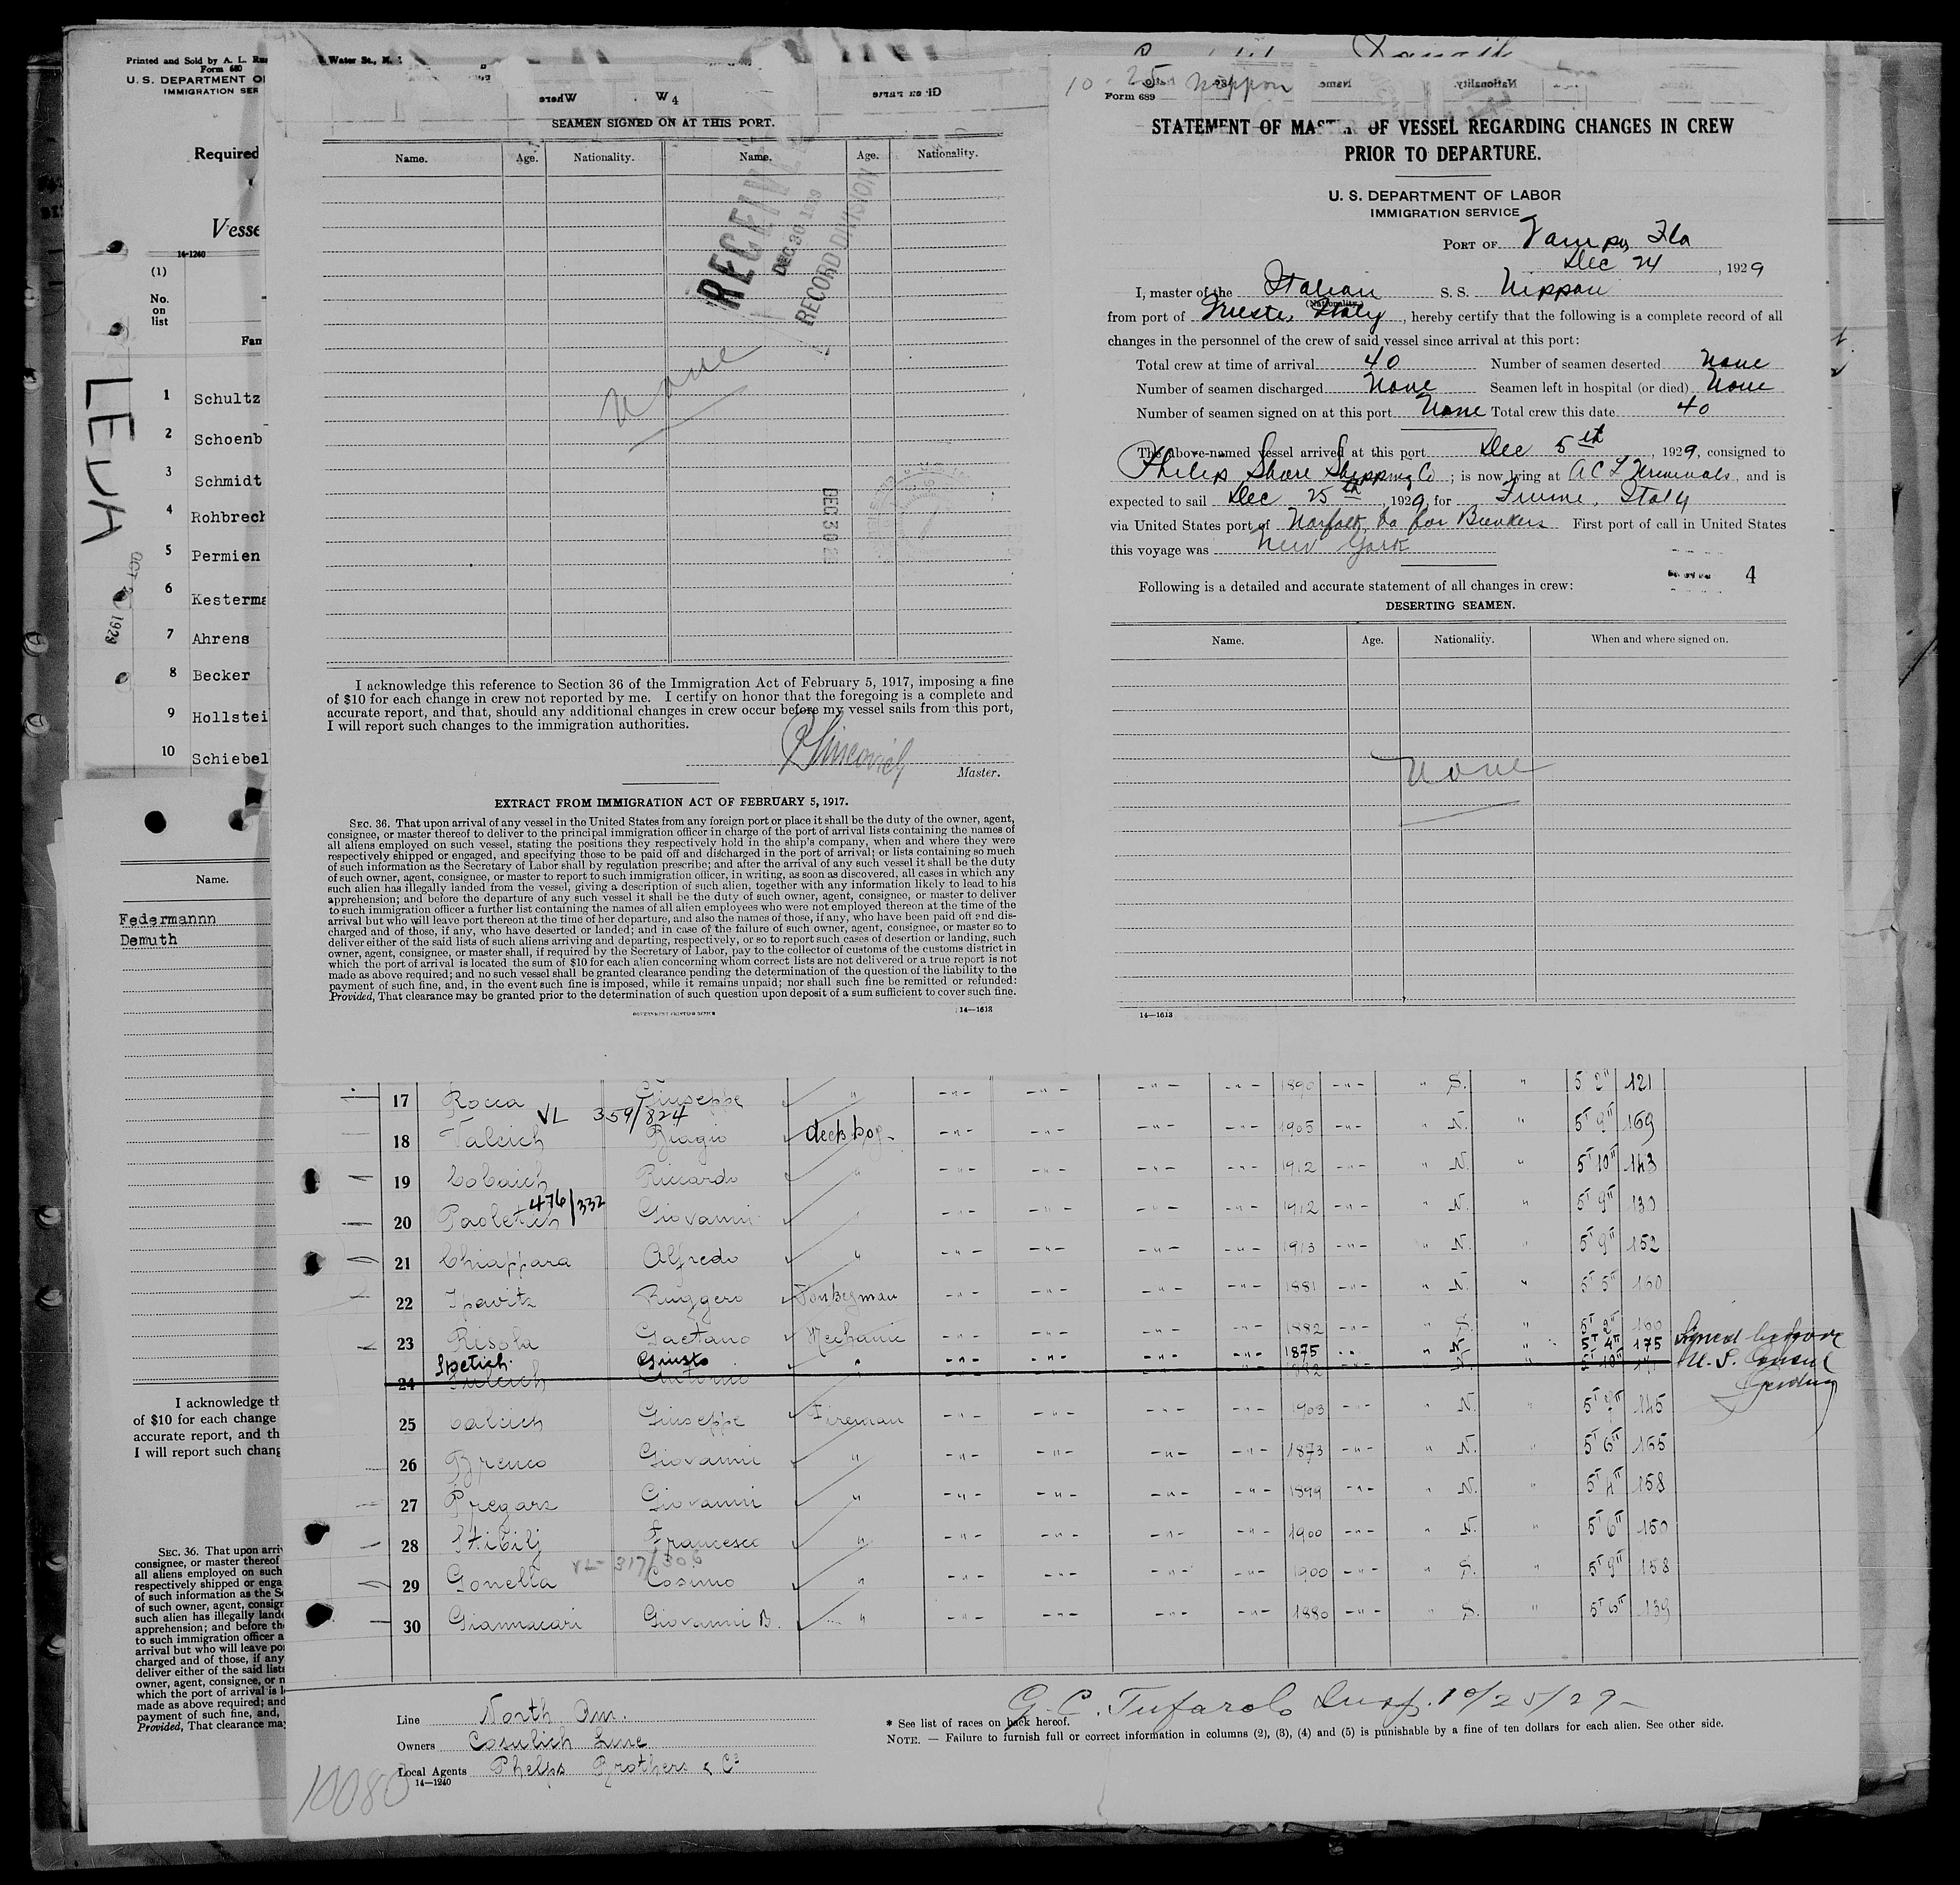 Printed and Sold by A. L.
Form 680
U. S. DEPARTMENT O
IMMIGRATION SER
Required
Vesse
14-1240
(1)
No.
on
list
Fam
1 Schultz
2 Schoenb
3 Schmidt
4 Rohbrech
5 Permien
6 Kesterma
7 Ahrens
8 Becker
9 Hollstei
10 Schiebel
Name.
Federmannn
Demuth
I acknowledge th
of $10 for each change
accurate report, and th
I will report such chang
SEC. 36. That upon arri
consignee, or master thereof
all aliens employed on such
respectively shipped or enga
of such information as the Se
of such owner, agent, consign
such alien has illegally lande
apprehension; and before the
to such immigration officer a
arrival but who will leave por
charged and of those, if any
deliver either of the said lists
owner, agent, consignee, or m
which the port of arrival is l
made as above required; and
payment of such fine, and,
Provided, That clearance may
Water St., N.
SEAMEN SIGNED ON AT THIS PORT.
Name. Age. Nationality. Name. Age. Nationality.
RECEIVED
DEC 30 1929
RECORD DIVISION
None
DEC 30
I acknowledge this reference to Section 36 of the Immigration Act of February 5, 1917, imposing a fine
of $10 for each change in crew not reported by me. I certify on honor that the foregoing is a complete and
accurate report, and that, should any additional changes in crew occur before my vessel sails from this port,
I will report such changes to the immigration authorities.
Master.
EXTRACT FROM IMMIGRATION ACT OF FEBRUARY 5, 1917.
SEC. 36. That upon arrival of any vessel in the United States from any foreign port or place it shall be the duty of the owner, agent,
consignee, or master thereof to deliver to the principal immigration officer in charge of the port of arrival lists containing the names of
all aliens employed on such vessel, stating the positions they respectively hold in the ship's company, when and where they were
respectively shipped or engaged, and specifying those to be paid off and discharged in the port of arrival; or lists containing so much
of such information as the Secretary of Labor shall by regulation prescribe; and after the arrival of any such vessel it shall be the duty
of such owner, agent, consignee, or master to report to such immigration officer, in writing, as soon as discovered, all cases in which any
such alien has illegally landed from the vessel, giving a description of such alien, together with any information likely to lead to his
apprehension; and before the departure of any such vessel it shall be the duty of such owner, agent, consignee, or master to deliver
to such immigration officer a further list containing the names of all alien employees who were not employed thereon at the time of the
arrival but who will leave port thereon at the time of her departure, and also the names of those, if any, who have been paid off and dis-
charged and of those, if any, who have deserted or landed; and in case of the failure of such owner, agent, consignee, or master so to
deliver either of the said lists of such aliens arriving and departing, respectively, or so to report such cases of desertion or landing, such
owner, agent, consignee, or master shall, if required by the Secretary of Labor, pay to the collector of customs of the customs district in
which the port of arrival is located the sum of $10 for each alien concerning whom correct lists are not delivered or a true report is not
made as above required; and no such vessel shall be granted clearance pending the determination of the question of the liability to the
payment of such fine, and, in the event such fine is imposed, while it remains unpaid; nor shall such fine be remitted or refunded:
Provided, That clearance may be granted prior to the determination of such question upon deposit of a sum sufficient to cover such fine.
GOVERNMENT PRINTING OFFICE 14—1613
10 - 25 Nippon
Form 689
STATEMENT OF MASTER OF VESSEL REGARDING CHANGES IN CREW
PRIOR TO DEPARTURE.
U. S. DEPARTMENT OF LABOR
IMMIGRATION SERVICE
PORT OF Tampa, Fla
Dec 24, 1929
I, master of the Italian S. S. Nippon
(Nationality.)
from port of Trieste, Italy, hereby certify that the following is a complete record of all
changes in the personnel of the crew of said vessel since arrival at this port:
Total crew at time of arrival 40 Number of seamen deserted None
Number of seamen discharged None Seamen left in hospital (or died) None
Number of seamen signed on at this port None Total crew this date 40
The above-named vessel arrived at this port Dec 5th, 1929, consigned to
Philip Shore Shipping Co; is now lying at A C L Terminals, and is
expected to sail Dec 25th, 1929, for Fiume, Italy
via United States port of Norfolk Va for Bunkers First port of call in United States
this voyage was New York
4
Following is a detailed and accurate statement of all changes in crew:
DESERTING SEAMEN.
Name. Age. Nationality. When and where signed on.
None
14—1613
17 Rocca Giuseppe " 1890 " S. " 5' 2" 121
VL 359/824
18 Valcich Biagio deck boy 1905 " N. " 5' 9" 169
19 Cobaich Riccardo " 1912 " N. " 5' 10" 143
476/332
20 Paoletich Giovanni 1912 " N. " 5' 9" 130
21 Chiappara Alfredo " 1913 " N. " 5' 9" 152
22 Ipavitz Ruggero Donkeyman 1881 " N. " 5' 5" 160
23 Risola Gaetano Mechanic 1882 " S. " 160
Spetich Giusto " 1875 " N. " 5' 4" 175 Signed before
24 Antonio 1882 U. S. Consul
25 Calcich Giuseppe Fireman 1903 " N. " 145
26 Brenco Giovanni " 1873 " N. " 5' 6" 165
27 Pregarz Giovanni " 1899 " N. " 5' 4" 158
28 Stibilj Francesco " 1900 " N. " 5' 6" 150
VL- 317/306
29 Gonella Cosimo " 1900 " S. " 5' 9" 158
30 Giannacari Giovanni B. " 1880 " S. " 5' 6" 139
G. C. Tufarolo Insp. 10/25/29
Line North Am.
Owners Cosulich Line
Local Agents Phelps Brothers & Co
14—1240
10080
* See list of races on back hereof.
NOTE. — Failure to furnish full or correct information in columns (2), (3), (4) and (5) is punishable by a fine of ten dollars for each alien. See other side.